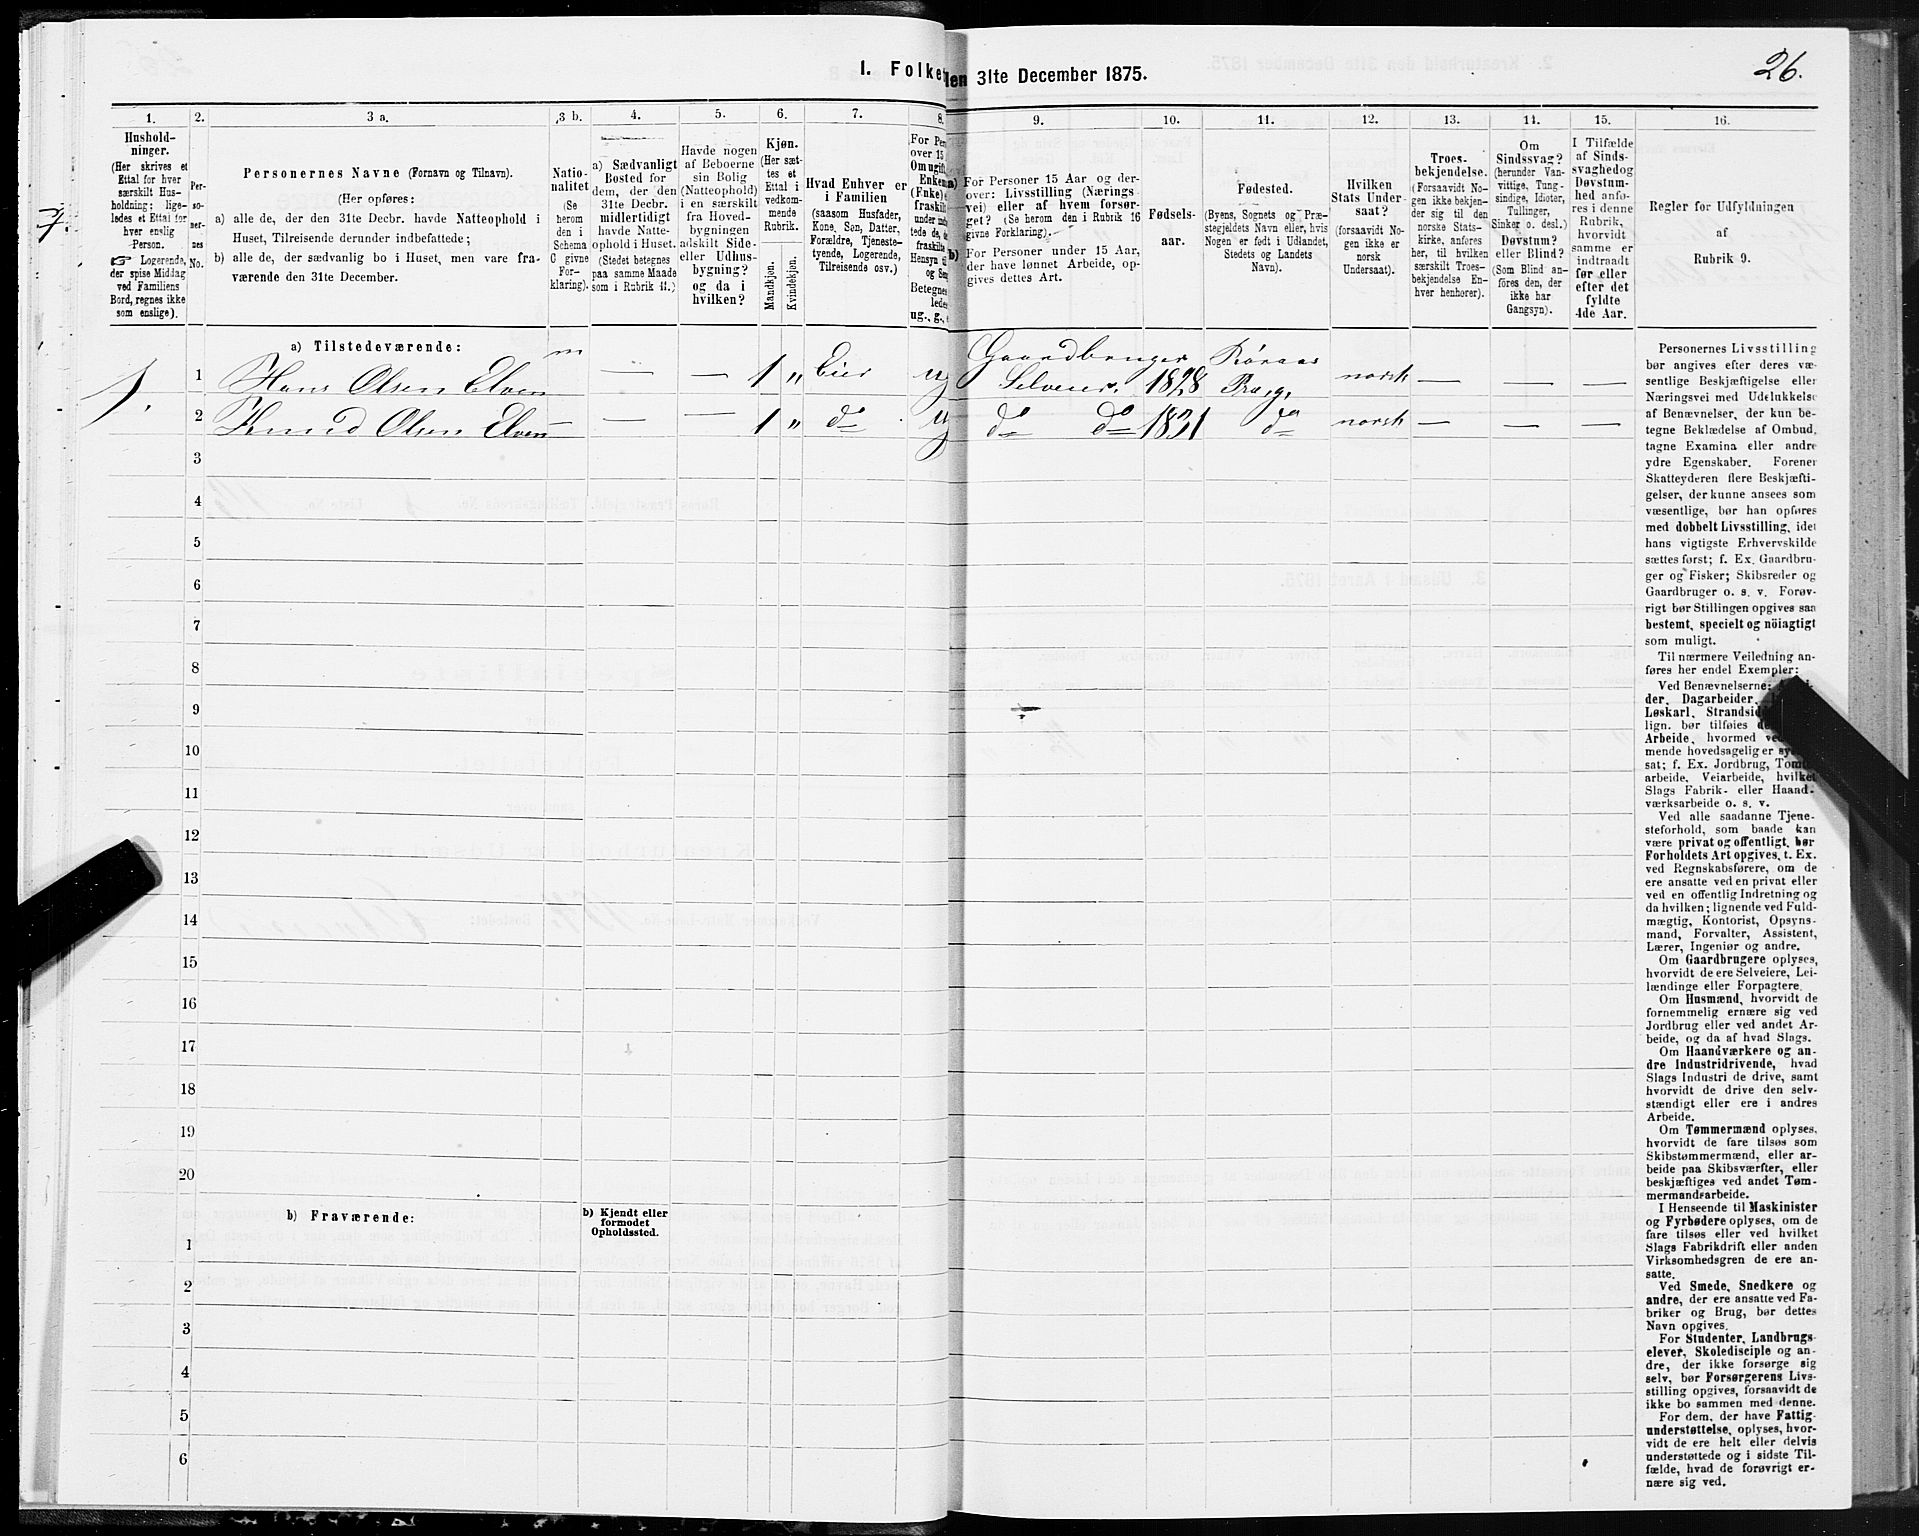 26.
I. Folke
den 31te December 1875.
1.
2.
3 a.
3 b.
4.
5.
6.
7.
8.
9.
10.
11.
12.
13.
14.
15.
16.
Hushold-
ninger.
(Her skrives et
Ettal for hver
særskilt Hus-
holdning; lige-
ledes et Ettal for
hver enslig
Person.
☞ Logerende,
der spise Middag
ved Familiens
Bord, regnes ikke
som enslige).
Per-
so-
ner-
nes
No.
Personernes Navne (Fornavn og Tilnavn).
(Her opføres:
a) alle de, der den 31te Decbr. havde Natteophold i
Huset, Tilreisende derunder indbefattede;
b) alle de, der sædvanlig bo i Huset, men vare fra-
værende den 31te December.
Natio-
nalitet
(Se
herom
den i
Schema
C givne
For-
klaring).
a) Sædvanligt
Bosted for
dem, der den
31te Decbr.
midlertidigt
havde Natte-
ophold i Huset.
(Stedet betegnes
paa samme Maade
som i Rubrik 11.)
Havde nogen
af Beboerne
sin Bolig
(Natteophold)
i en særskilt
fra Hoved-
bygningen
adskilt Side-
eller Udhus-
bygning?
og da i
hvilken?
Kjøn.
(Her sæt-
tes et
Ettal i
vedkom-
mende
Rubrik.
Mandkjøn.
Kvindekjøn.
Hvad Enhver er
i Familien
(saasom Husfader,
Kone, Søn, Datter,
Forældre, Tjeneste-
tyende, Logerende,
Tilreisende osv.)
For Per
over 15
Om ugift
Enkem
(Fnke)
fraskilt
under
tede de,
fraskilte
Hensyn til
og Sen
Betegnes
ledes
ug., g.,
a) For Personer 15 Aar og der-
over: Livsstilling (Nærings
vei) eller af hvem forsør-
get? (Se herom den i Rubrik 16
givne Forklaring).
b) For Personer under 15 Aar,
der have lønnet Arbeide, op-
gives dettes Art.
Fødsels-
aar.
Fødested.
(Byens, Sognets og Præ-
stegjeldets Navn eller, hvis
Nogen er født i Udlandet,
Stedets og Landets
Navn).
Hvilken
Stats Under-
saat?
(forsaavidt No-
gen ikke er
norsk
Undersaat).
Troes-
bekjendelse.
(Forsaavidt No-
gen ikke bekjen-
der sig til den
norske Stats-
kirke, anføres
her, til hvilken
særskilt Troes-
bekjendelse En-
hver henhører).
Om
Sindssvag?
(herunder Van-
vittige, Tung-
sindige, Idioter,
Tullinger,
Sinker o. desl.)
Døvstum?
eller Blind?
(Som Blind an-
föres den, der
ikke har
Gangsyn).
I Tilfælde
af Sinds-
svaghed og
Døvstum-
hed anfø-
res i denne
Rubrik,
hvorvidt
samme er
indtraadt
før eller
efter det
fyldte
4de Aar.
Regler for Udfyldningen
af
Rubrik 9.
a) Tilstedeværende:
1. 1 Hans Olsen Elven n — — 1 " Eier ug Gaardbruger Selveier. 1828 Røraas Præg. norsk — — —
2 Knud Olsen Elven — — — 1 " do ug do do 1831 do norsk — — —
3
4
5
6
7
8
9
10
11
12
13
14
15
16
17
18
19
20
b) Fraværende:
b) Kjendt eller
formodet
Opholdssted.
1
2
3
4
5
6
Personernes Livsstilling
bør angives efter deres væ-
sentlige Beskjæftigelse eller
Næringsvei med Udelukkelse
af Benævnelser, der kun be-
tegne Beklædelse af Ombud,
tagne Examina eller andre
ydre Egenskaber. Forener
Skatteyderen flere Beskjæfti-
gelser, der kunne ansees som
væsentlige, bør han opføres
med dobbelt Livsstilling, idet
hans vigtigste Erhvervskilde
sættes først; f. Ex. Gaardbru-
ger og Fisker; Skibsreder og
Gaardbruger o. s. v. Forøv-
rigt bør Stillingen opgives saa
bestemt, specielt og nöiagtigt
som muligt.
Til nærmere Veiledning an-
føres her endel Exempler:
Ved Benævnelserne:
der, Dagarbeider,
Løskarl, Strandsid
lign. bør tilføies
Arbeide, hvormed
mende hovedsagelig er
sat; f. Ex. Jordbrug, Tomt
arbeide, Veiarbeide, hvilket
Slags Fabrik- eller Haand-
værksarbeide o. s. v.
Ved alle saadanne Tjene-
steforhold, som baade kan
være privat og offentligt, bør
Forholdets Art opgives, t. Ex.
ved Regnskabsførere, om de
ere ansatte ved en privat eller
ved en offentlig Indretning og
da hvilken; lignende ved Fuld-
mægtig, Kontorist, Opsyns-
mand, Forvalter, Assistent,
Lærer, Ingeniør og andre.
Om Gaardbrugere oplyses,
hvorvidt de ere Selveiere, Lei-
lændinge eller Forpagtere.
Om Husmænd, hvorvidt de
fornemmelig ernære sig ved
Jordbrug eller ved andet Ar-
beide, og da af hvad Slags.
Om Haandværkere og an-
dre Industridrivende, hvad
Slags Industri de drive, samt
hvorvidt de drive den selv-
stændigt eller ere i andres
Arbeide.
Om Tømmermænd oplyses,
hvorvidt de fare tilsøs som
Skibstømmermænd, eller ar-
beide paa Skibsværfter, eller
beskjæftiges ved andet Tøm-
mermandsarbeide.
I Henseende til Maskinister
og Fyrbødere oplyses, om de
fare tilsøs eller ved hvilket
Slags Fabrikdrift eller anden
Virksomhedsgren de ere an-
satte.
Ved Smede, Snedkere og
andre, der ere ansatte ved Fa-
briker og Brug, bør dettes
Navn opgives.
For Studenter, Landbrugs-
elever, Skoledisciple og an-
dre, der ikke forsørge sig
selv, bør Forsørgerens Livs-
stilling opgives, forsaavidt de
ikke bo sammen med denne.
For dem, der have Fattig-
understøttelse, oplyses, hvor-
vidt de ere helt eller delvis
understøttede og i sidste Til-
fælde, hvad de forøvrigt er-
nære sig ved.